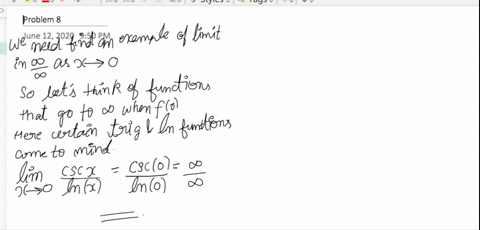 Problem 8
June 12, 2020 9:50 PM
We need find an example of limit
in ∞/∞ as x→0
So let's think of functions
that go to ∞ when f(0)
Here certain trig & ln functions
come to mind.
lim x→0 csc x / ln(x) = csc(0) / ln(0) = ∞/∞